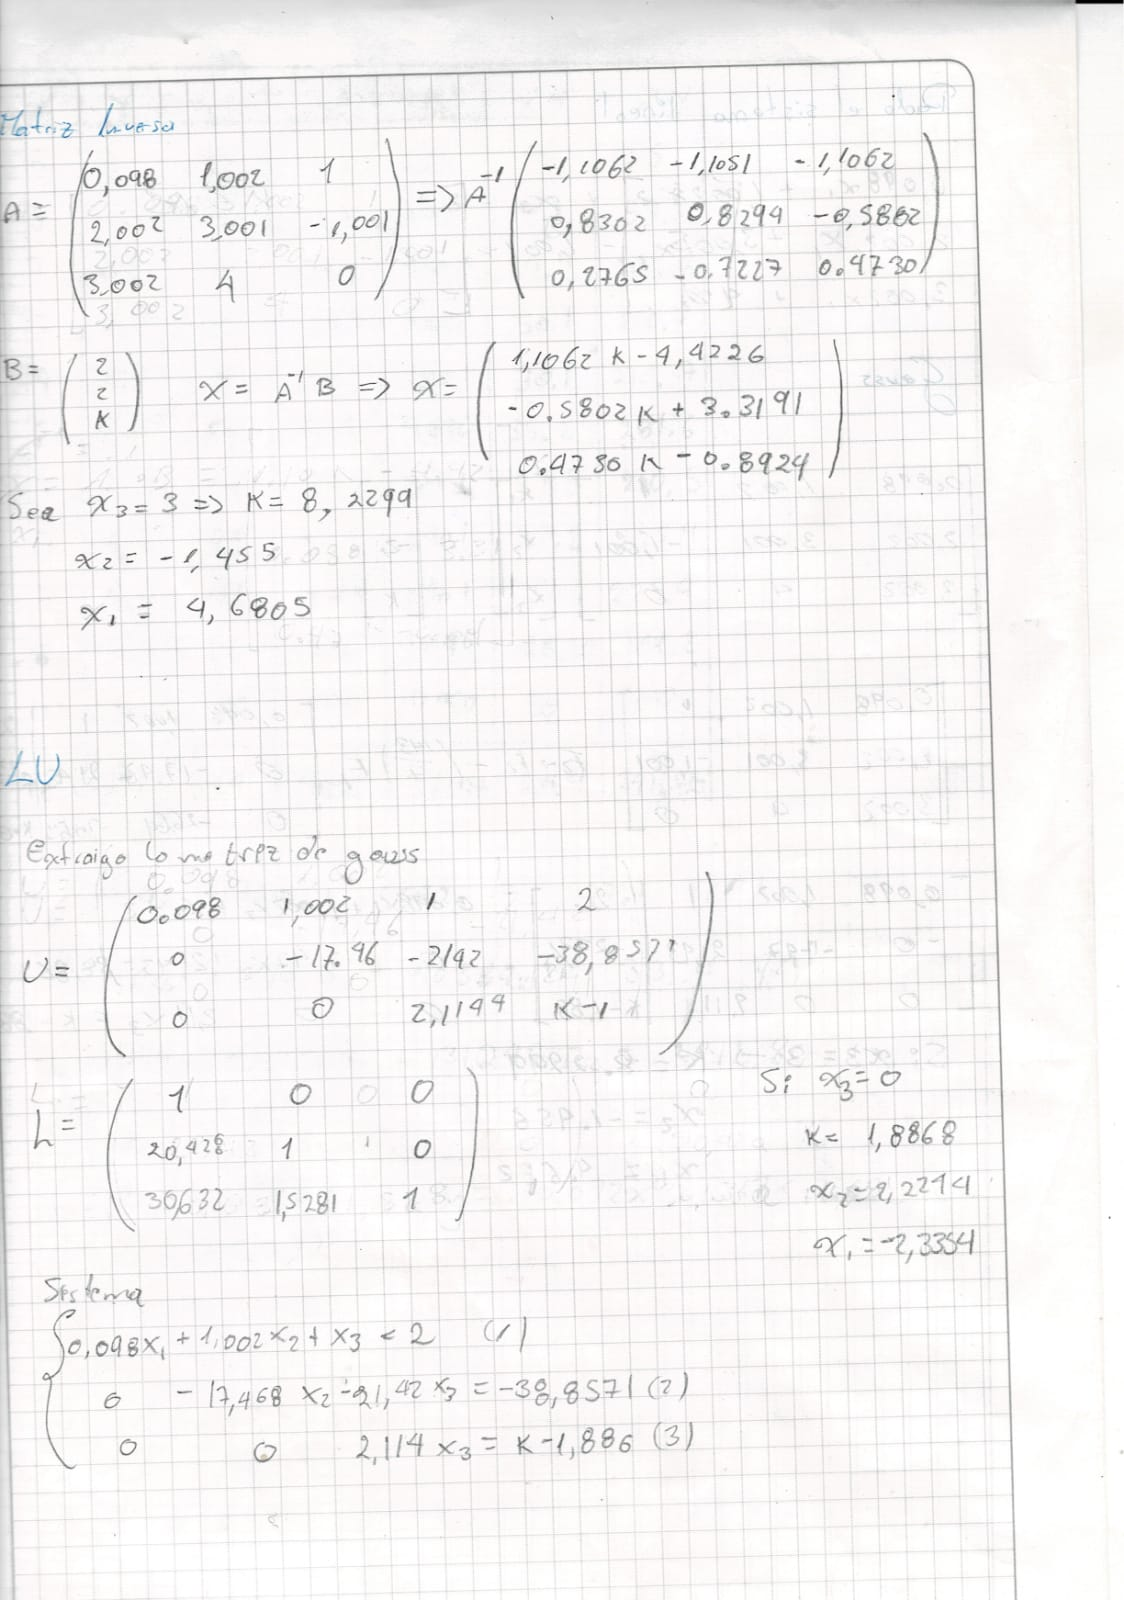 Matriz Inversa
A = ( 0,098 1,002 1 ) => A^-1 ( -1,1062 -1,1051 -1,1062 )
( 2,002 3,001 -1,001 ) ( 0,8302 0,8294 -0,5862 )
( 3,002 4 0 ) ( 0,2765 -0,7227 0.4730 )
B = ( 2 2 K ) X = A^-1 B => X = ( 1,1062 K - 4,4226
-0.5802 K + 3.3191
0.4730 K - 0.8924 )
Sea x3 = 3 => K = 8,2299
x2 = -1,455
x1 = 4,6805
LU
Extraigo la matriz de gauss
U = ( 0.098 1,002 1 2
0 -17.46 -2142 -38,8571
0 0 2,1144 K-1 )
L = ( 1 0 0
20,428 1 0
30,632 1,5281 1 )
Si x3 = 0
K = 1,8868
x2 = 2,2214
x1 = -2,3354
Sistema
{ 0,098x1 + 1,002x2 + x3 = 2 (1)
0 - 17,468 x2 - 21,42 x3 = -38,8571 (2)
0 0 2,114 x3 = K - 1,886 (3)